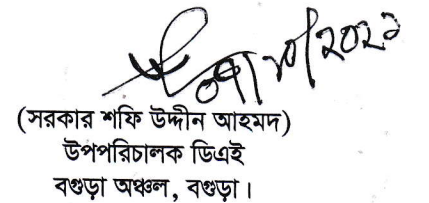 (সরকার শফি উদ্দীন আহমদ)
উপপরিচালক ডিএই
বগুড়া অঞ্চল, বগুড়া।